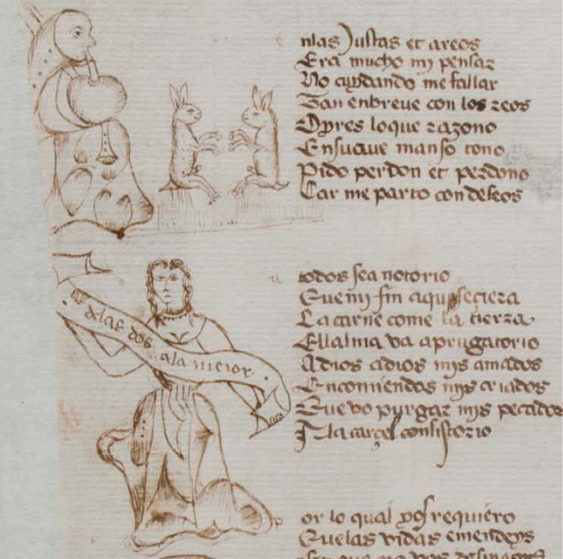 nlas Justas et areos
Era mucho mj pensar
No cuydando me fallar
Tan enbreue con los reos
Oyres loque razono
Ensuaue manso tono
Pido perdon et perdono
Car me parto con deseos
todos sea notorio
Que mj fin aqui seçierra
La carne come la tierra
El alma va a prugatorio
Adios adios mjs amados
Enconmendos mjs criados
Que vo purgar mjs pecados
A la carçel consistorio
delas dos ala meior
or lo qual vos requiero
Que las vidas emendeys